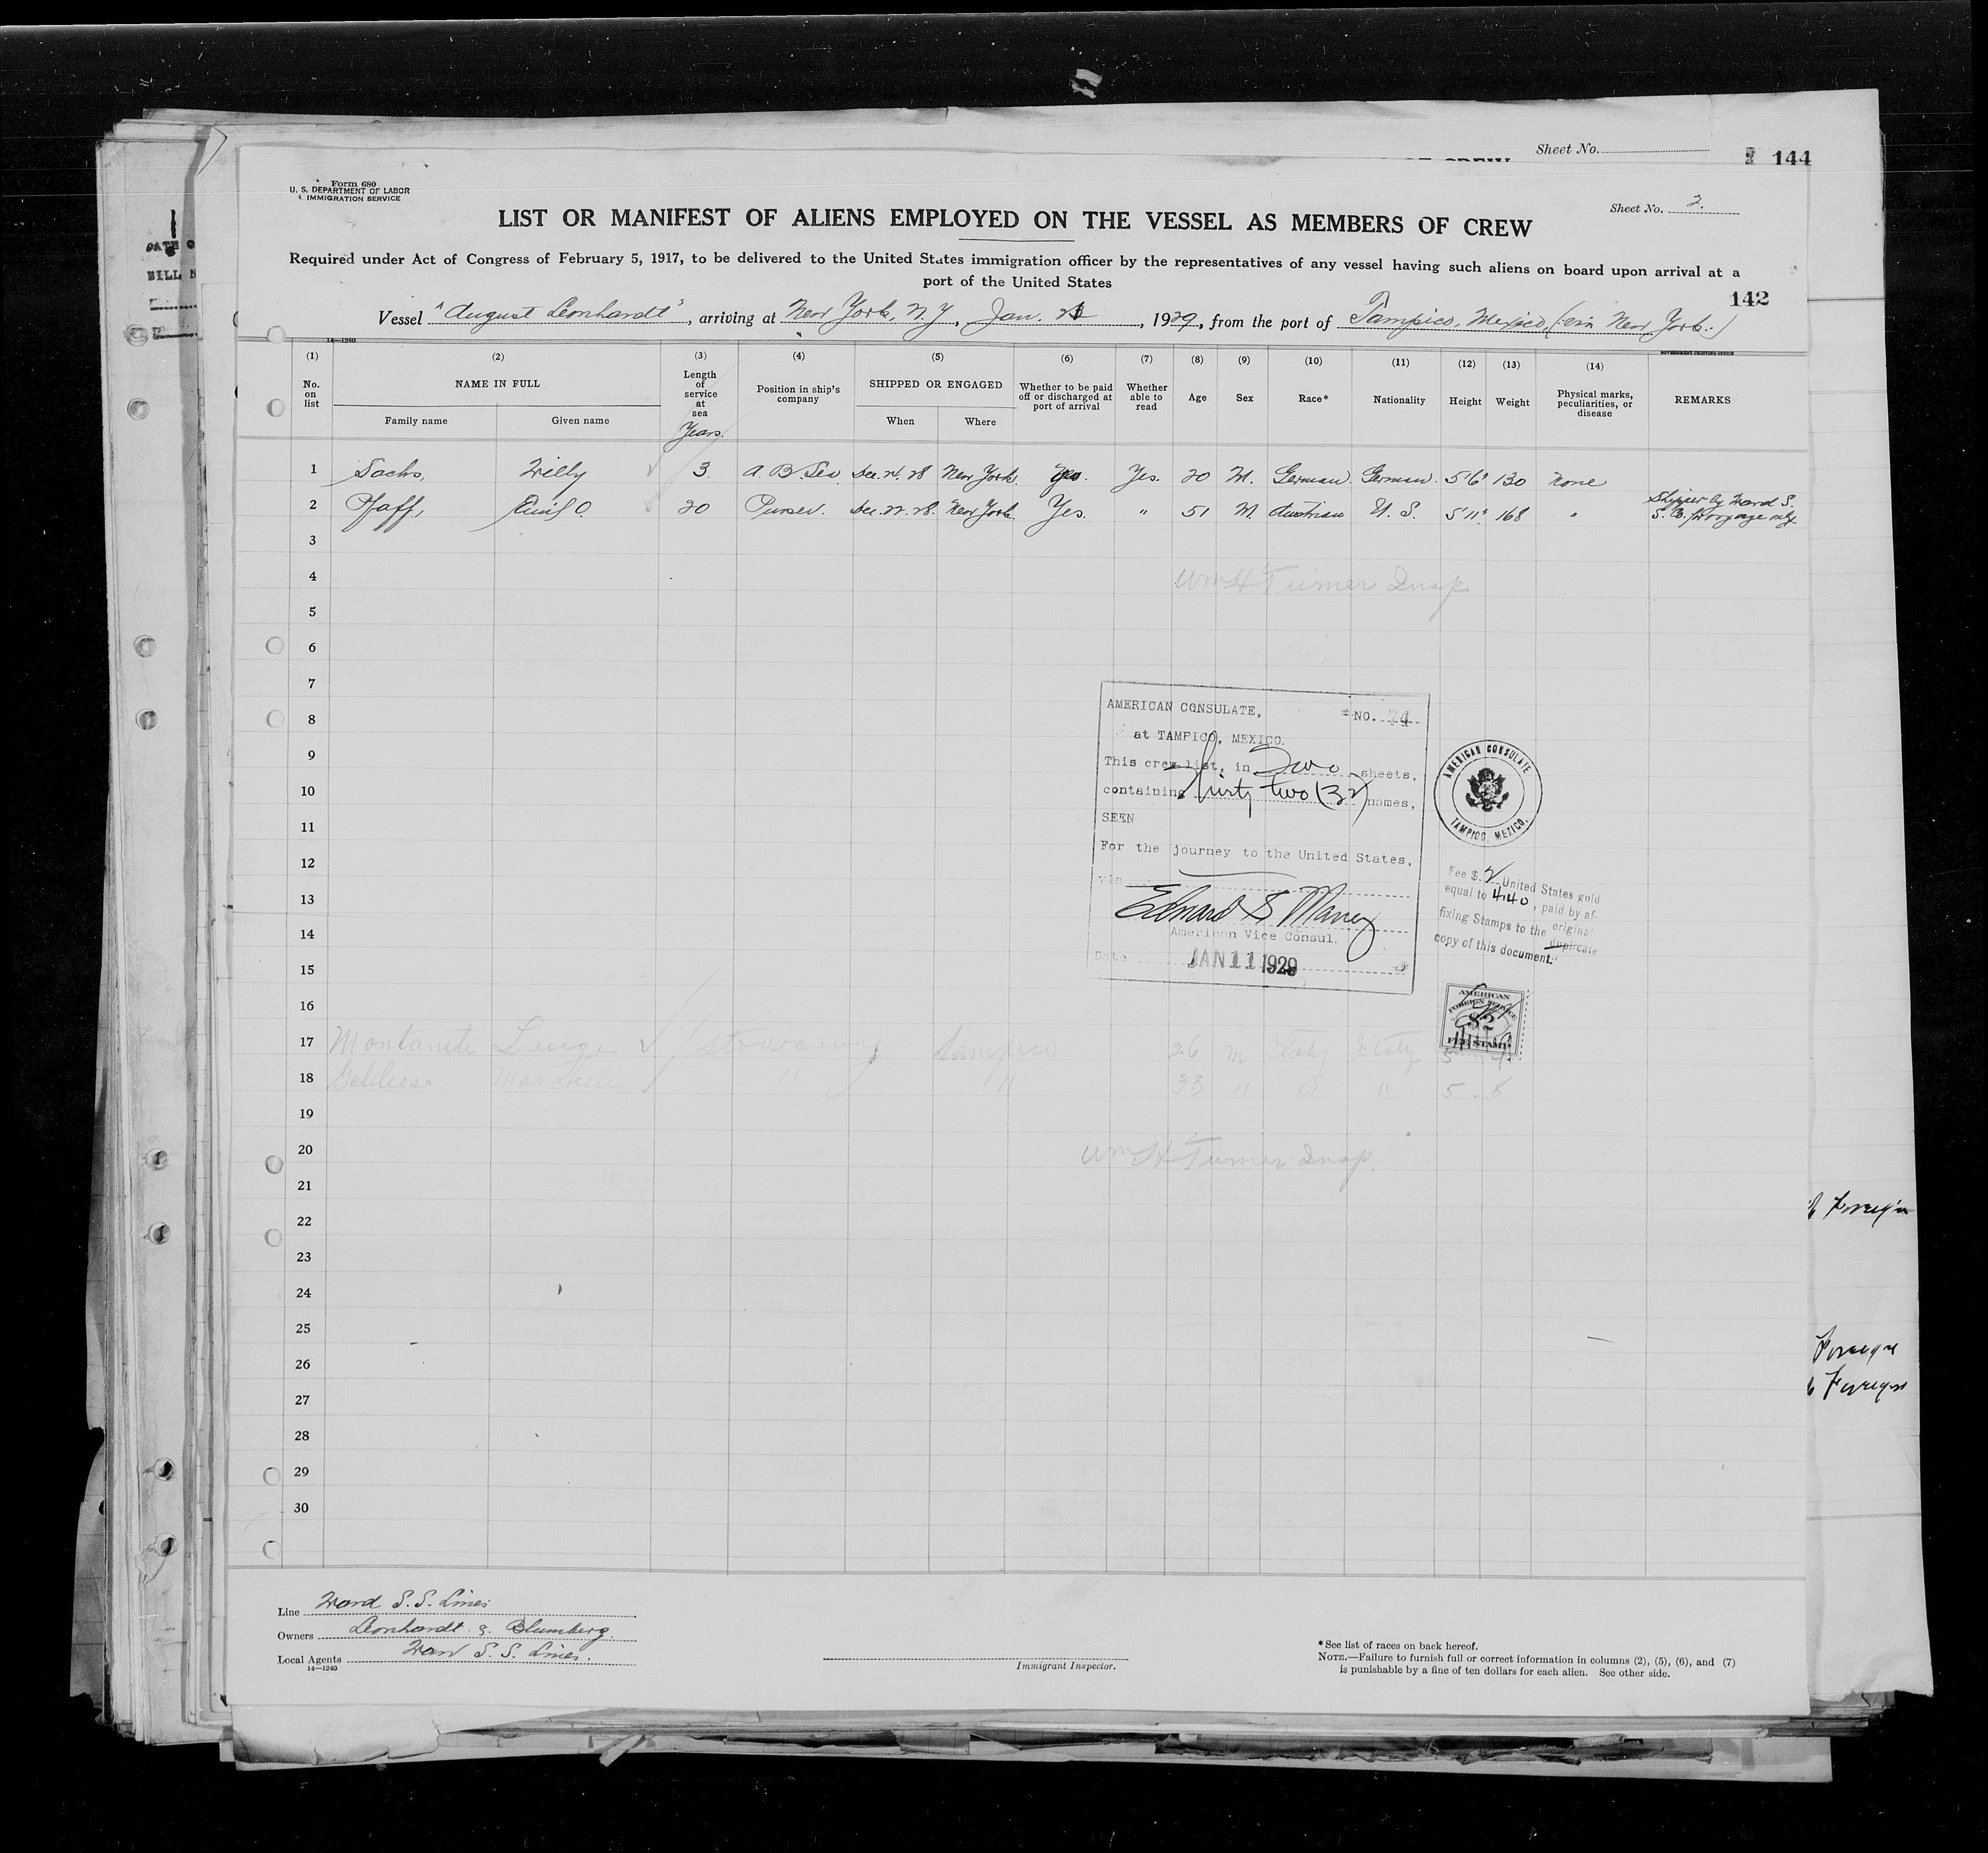 Sheet No.
144
Form 680
U. S. DEPARTMENT OF LABOR
IMMIGRATION SERVICE
Sheet No. 2.
LIST OR MANIFEST OF ALIENS EMPLOYED ON THE VESSEL AS MEMBERS OF CREW
Required under Act of Congress of February 5, 1917, to be delivered to the United States immigration officer by the representatives of any vessel having such aliens on board upon arrival at a
port of the United States
142
Vessel "August Leonhardt", arriving at New York, N.Y., Jan., 1929, from the port of Tampico, Mexico, New York.
14—1240
GOVERNMENT PRINTING OFFICE
(1) (2) (3) (4) (5) (6) (7) (8) (9) (10) (11) (12) (13) (14)
No. on list
NAME IN FULL
Family name Given name
Length of service at sea
Years.
Position in ship's company
SHIPPED OR ENGAGED
When Where
Whether to be paid off or discharged at port of arrival
Whether able to read
Age Sex Race* Nationality Height Weight
Physical marks, peculiarities, or disease
REMARKS
1 Sachs, Willy 3 A. B. Sea. Dec. 24. 28 New York. Yes. Yes. 20 M. German. German. 5'6" 130 None
2 Pfaff, Emil O. 20 Purser. Dec. 22. 28. New York. Yes. " 51 M. Austrian U. S. 5'11" 168 "
by Ward S.
3
4 Wm H Turner Insp
5
6
7
8
9
10
11
12
13
14
15
16
17 Stowaway Tampico 26 m Italy Italy 5
18 " " 33 " " " 5 - 8
19
20 Wm H Turner Insp.
21
22
23
24
25
26
27
28
29
30
AMERICAN CONSULATE, NO. 74
at TAMPICO, MEXICO.
This crew list, in Two sheets,
containing thirty two (32) names,
SEEN
For the journey to the United States,
via
Edward S Maney
American Vice Consul.
Date JAN 11 1929
AMERICAN CONSULATE
TAMPICO, MEXICO.
Fee $ 2 United States gold
equal to 4.40, paid by af-
fixing Stamps to the original
duplicate
copy of this document.
AMERICAN
FOREIGN SERVICE
$2
FEE STAMP
Foreign
Foreign
Foreign
Line Ward S. S. Lines
Owners Leonhardt & Blumberg.
Local Agents Ward S. S. Lines.
14—1240
Immigrant Inspector.
* See list of races on back hereof.
NOTE.—Failure to furnish full or correct information in columns (2), (5), (6), and (7)
is punishable by a fine of ten dollars for each alien. See other side.